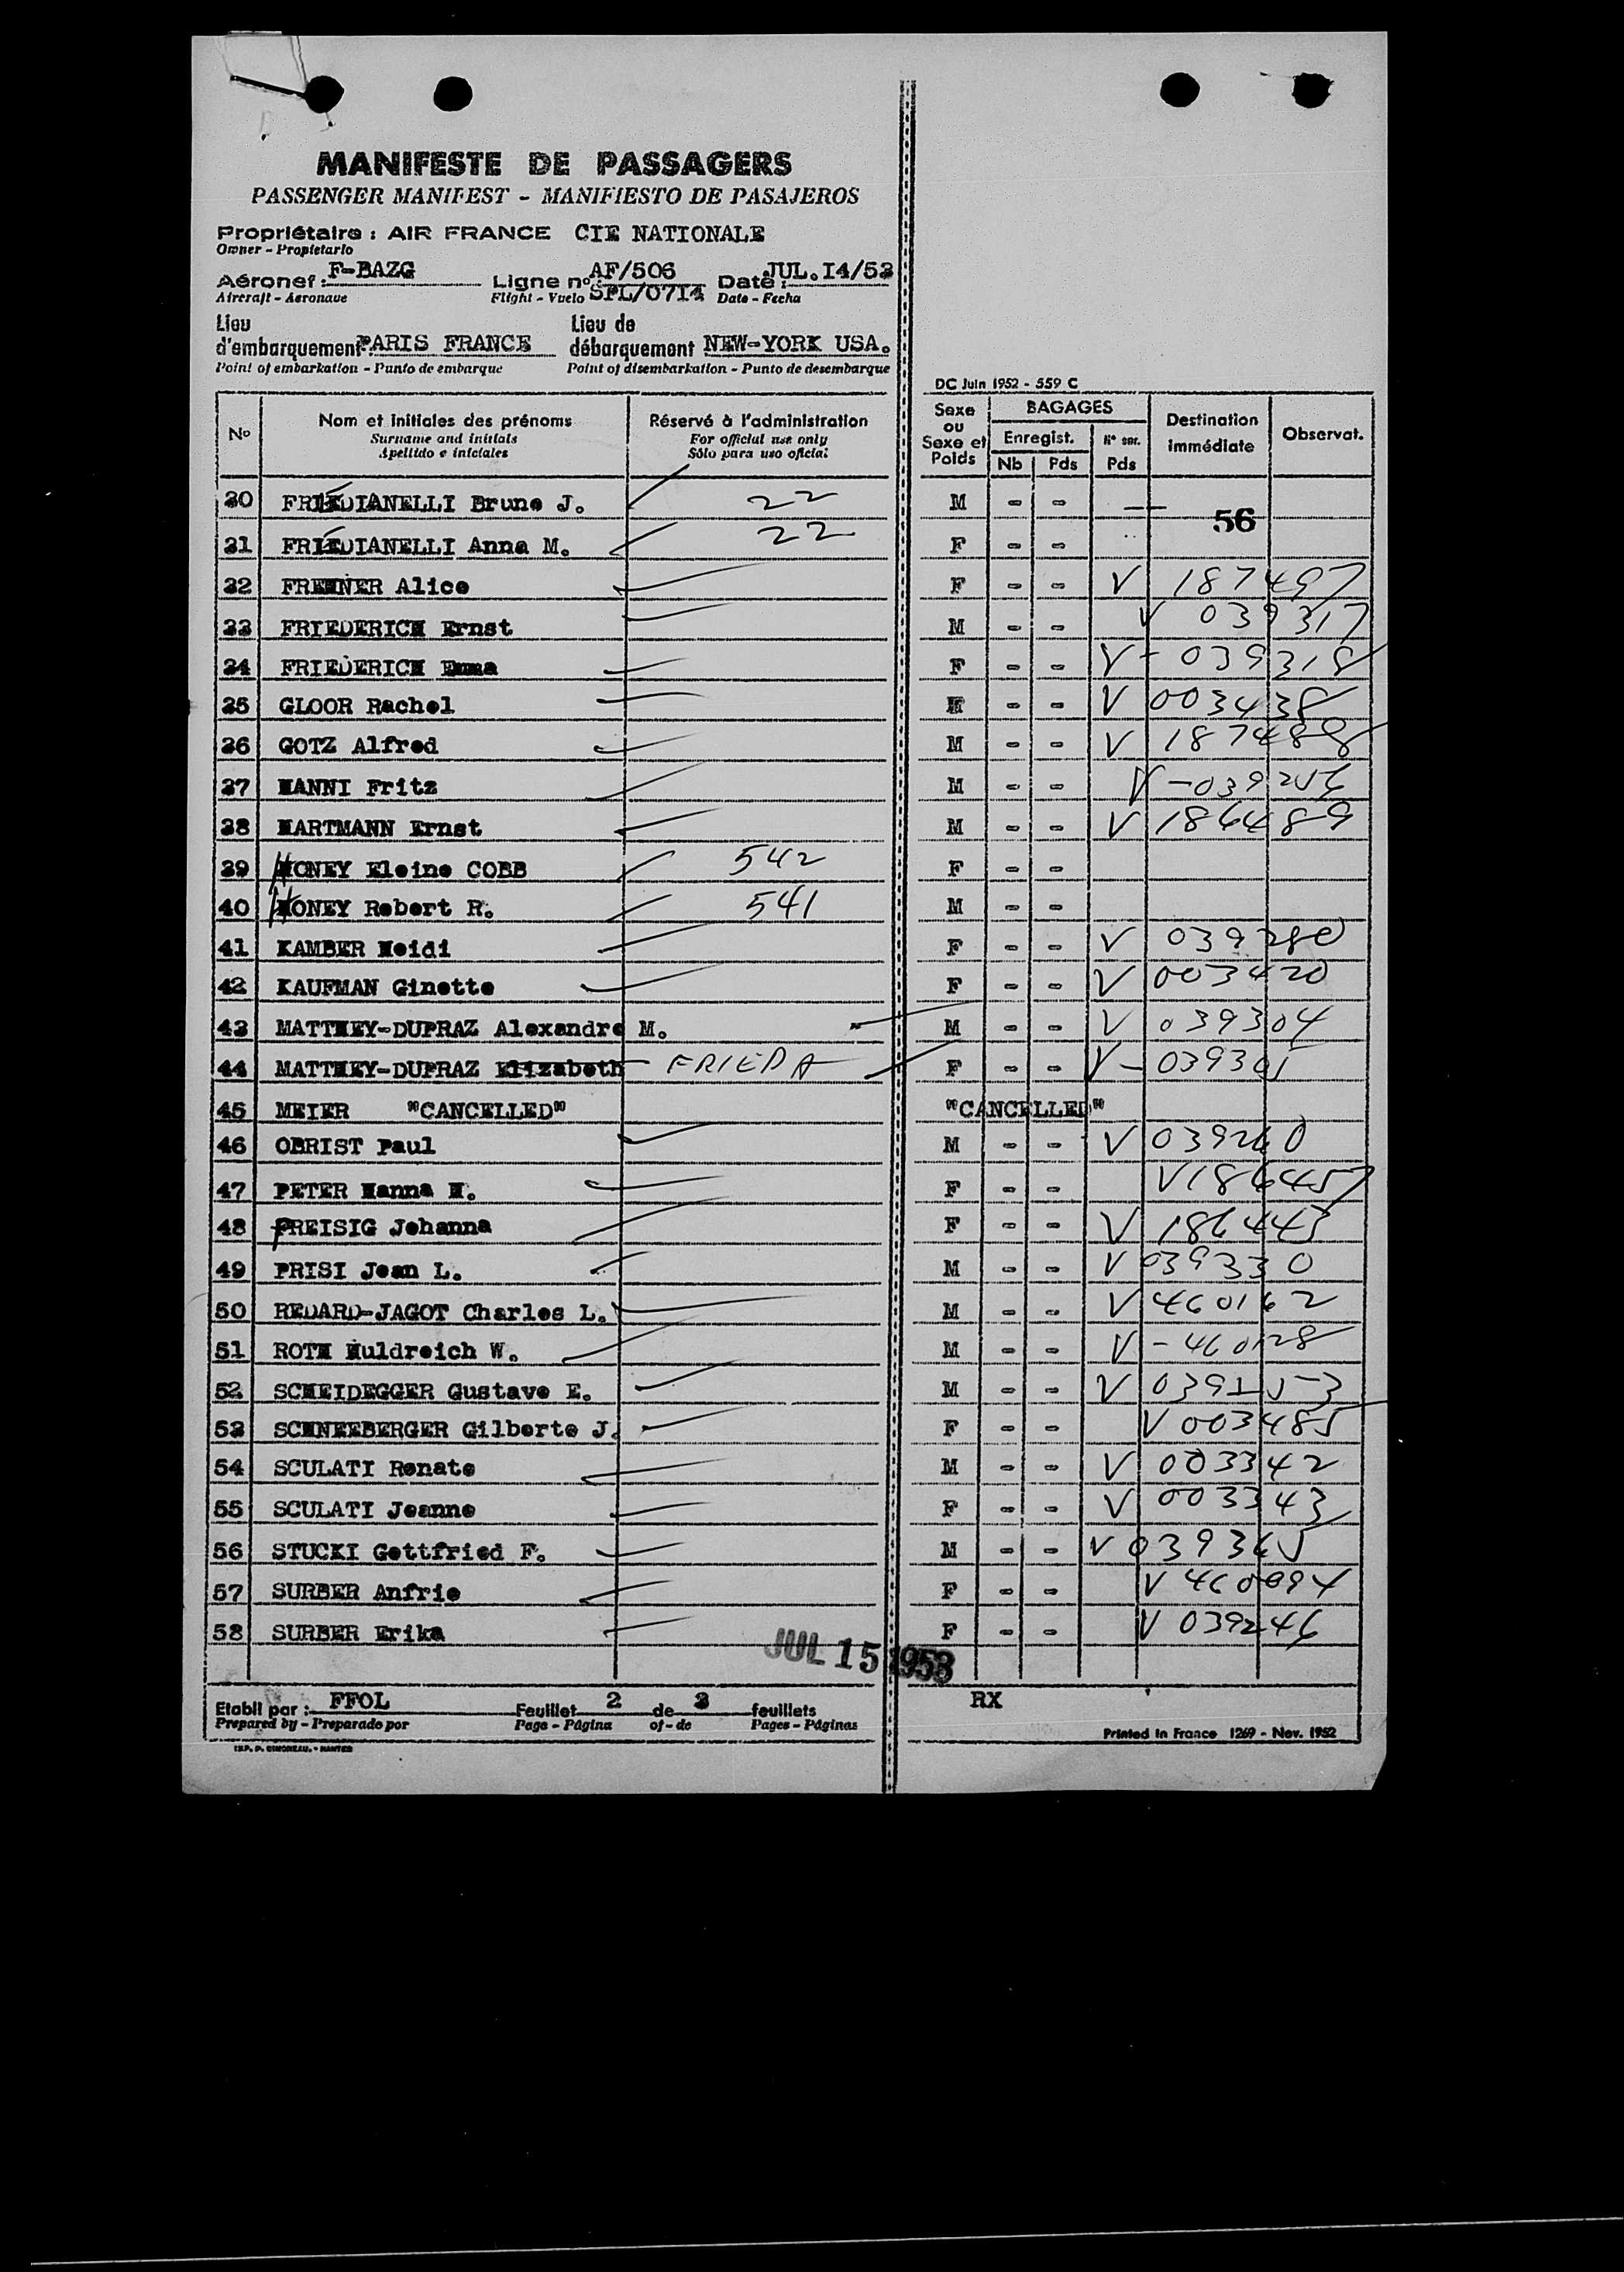 MANIFESTE DE PASSAGERS
PASSENGER MANIFEST - MANIFIESTO DE PASAJEROS
Propriétaire : AIR FRANCE CIE NATIONALE
Owner - Propietario
Aéronef : F-BAZG Ligne n° : AF/506 SPL/0714 Date : JUL.I4/53
Aircraft - Aeronave Flight - Vuelo Date - Fecha
Lieu d'embarquement : PARIS FRANCE Lieu de débarquement NEW-YORK USA.
Point of embarkation - Punto de embarque Point of disembarkation - Punto de desembarque
DC Juin 1952 - 559 C
N° Nom et initiales des prénoms Réservé à l'administration Sexe ou Sexe et Poids BAGAGES Destination immédiate Observat.
Surname and initials For official use only Enregist. N° enr.
Apellido e iniciales Sólo para uso oficial Nb Pds Pds
30 FRIEDIANELLI Bruno J. 22 M - - —
56
31 FRIEDIANELLI Anna M. 22 F - -
32 FREHNER Alice F - - V 187497
33 FRIEDERICH Ernst M - - V 039317
34 FRIEDERICH Emma F - - V - 039318
35 GLOOR Rachel - - V 003438
36 GOTZ Alfred M - - V 187488
37 HANNI Fritz M - - V - 039256
38 HARTMANN Ernst M - - V 186489
39 HONEY Eleine COBB 542 F - -
40 HONEY Robert R. 541 M - -
41 KAMBER Heidi F - - V 039280
42 KAUFMAN Ginette F - - V 003420
43 MATTHEY-DUPRAZ Alexandre M. M - - V 039304
44 MATTHEY-DUPRAZ Elizabeth FRIEDA F - - V - 039305
45 MEIER "CANCELLED" "CANCELLED"
46 OBRIST Paul M - - V 039260
47 PETER Hanna H. F - - V 186457
48 PREISIG Johanna F - - V 186443
49 PRISI Jean L. M - - V 039330
50 REDARD-JAGOT Charles L. M - - V 460162
51 ROTH Huldreich W. M - - V - 460128
52 SCHEIDEGGER Gustave E. M - - V
53 SCHNEEBERGER Gilberte J. F - - V 003485
54 SCULATI Renato M - - V 003342
55 SCULATI Jeanne F - - V 003343
56 STUCKI Gottfried F. M - - V 039365
57 SURBER Anfrie F - - V 460094
58 SURBER Erika F - - V 039246
JUL 15 1953
Etabli par : FFOL Feuillet 2 de 3 feuillets RX
Prepared by - Preparado por Page - Página of - de Pages - Páginas
Printed in France 1269 - Nov. 1952